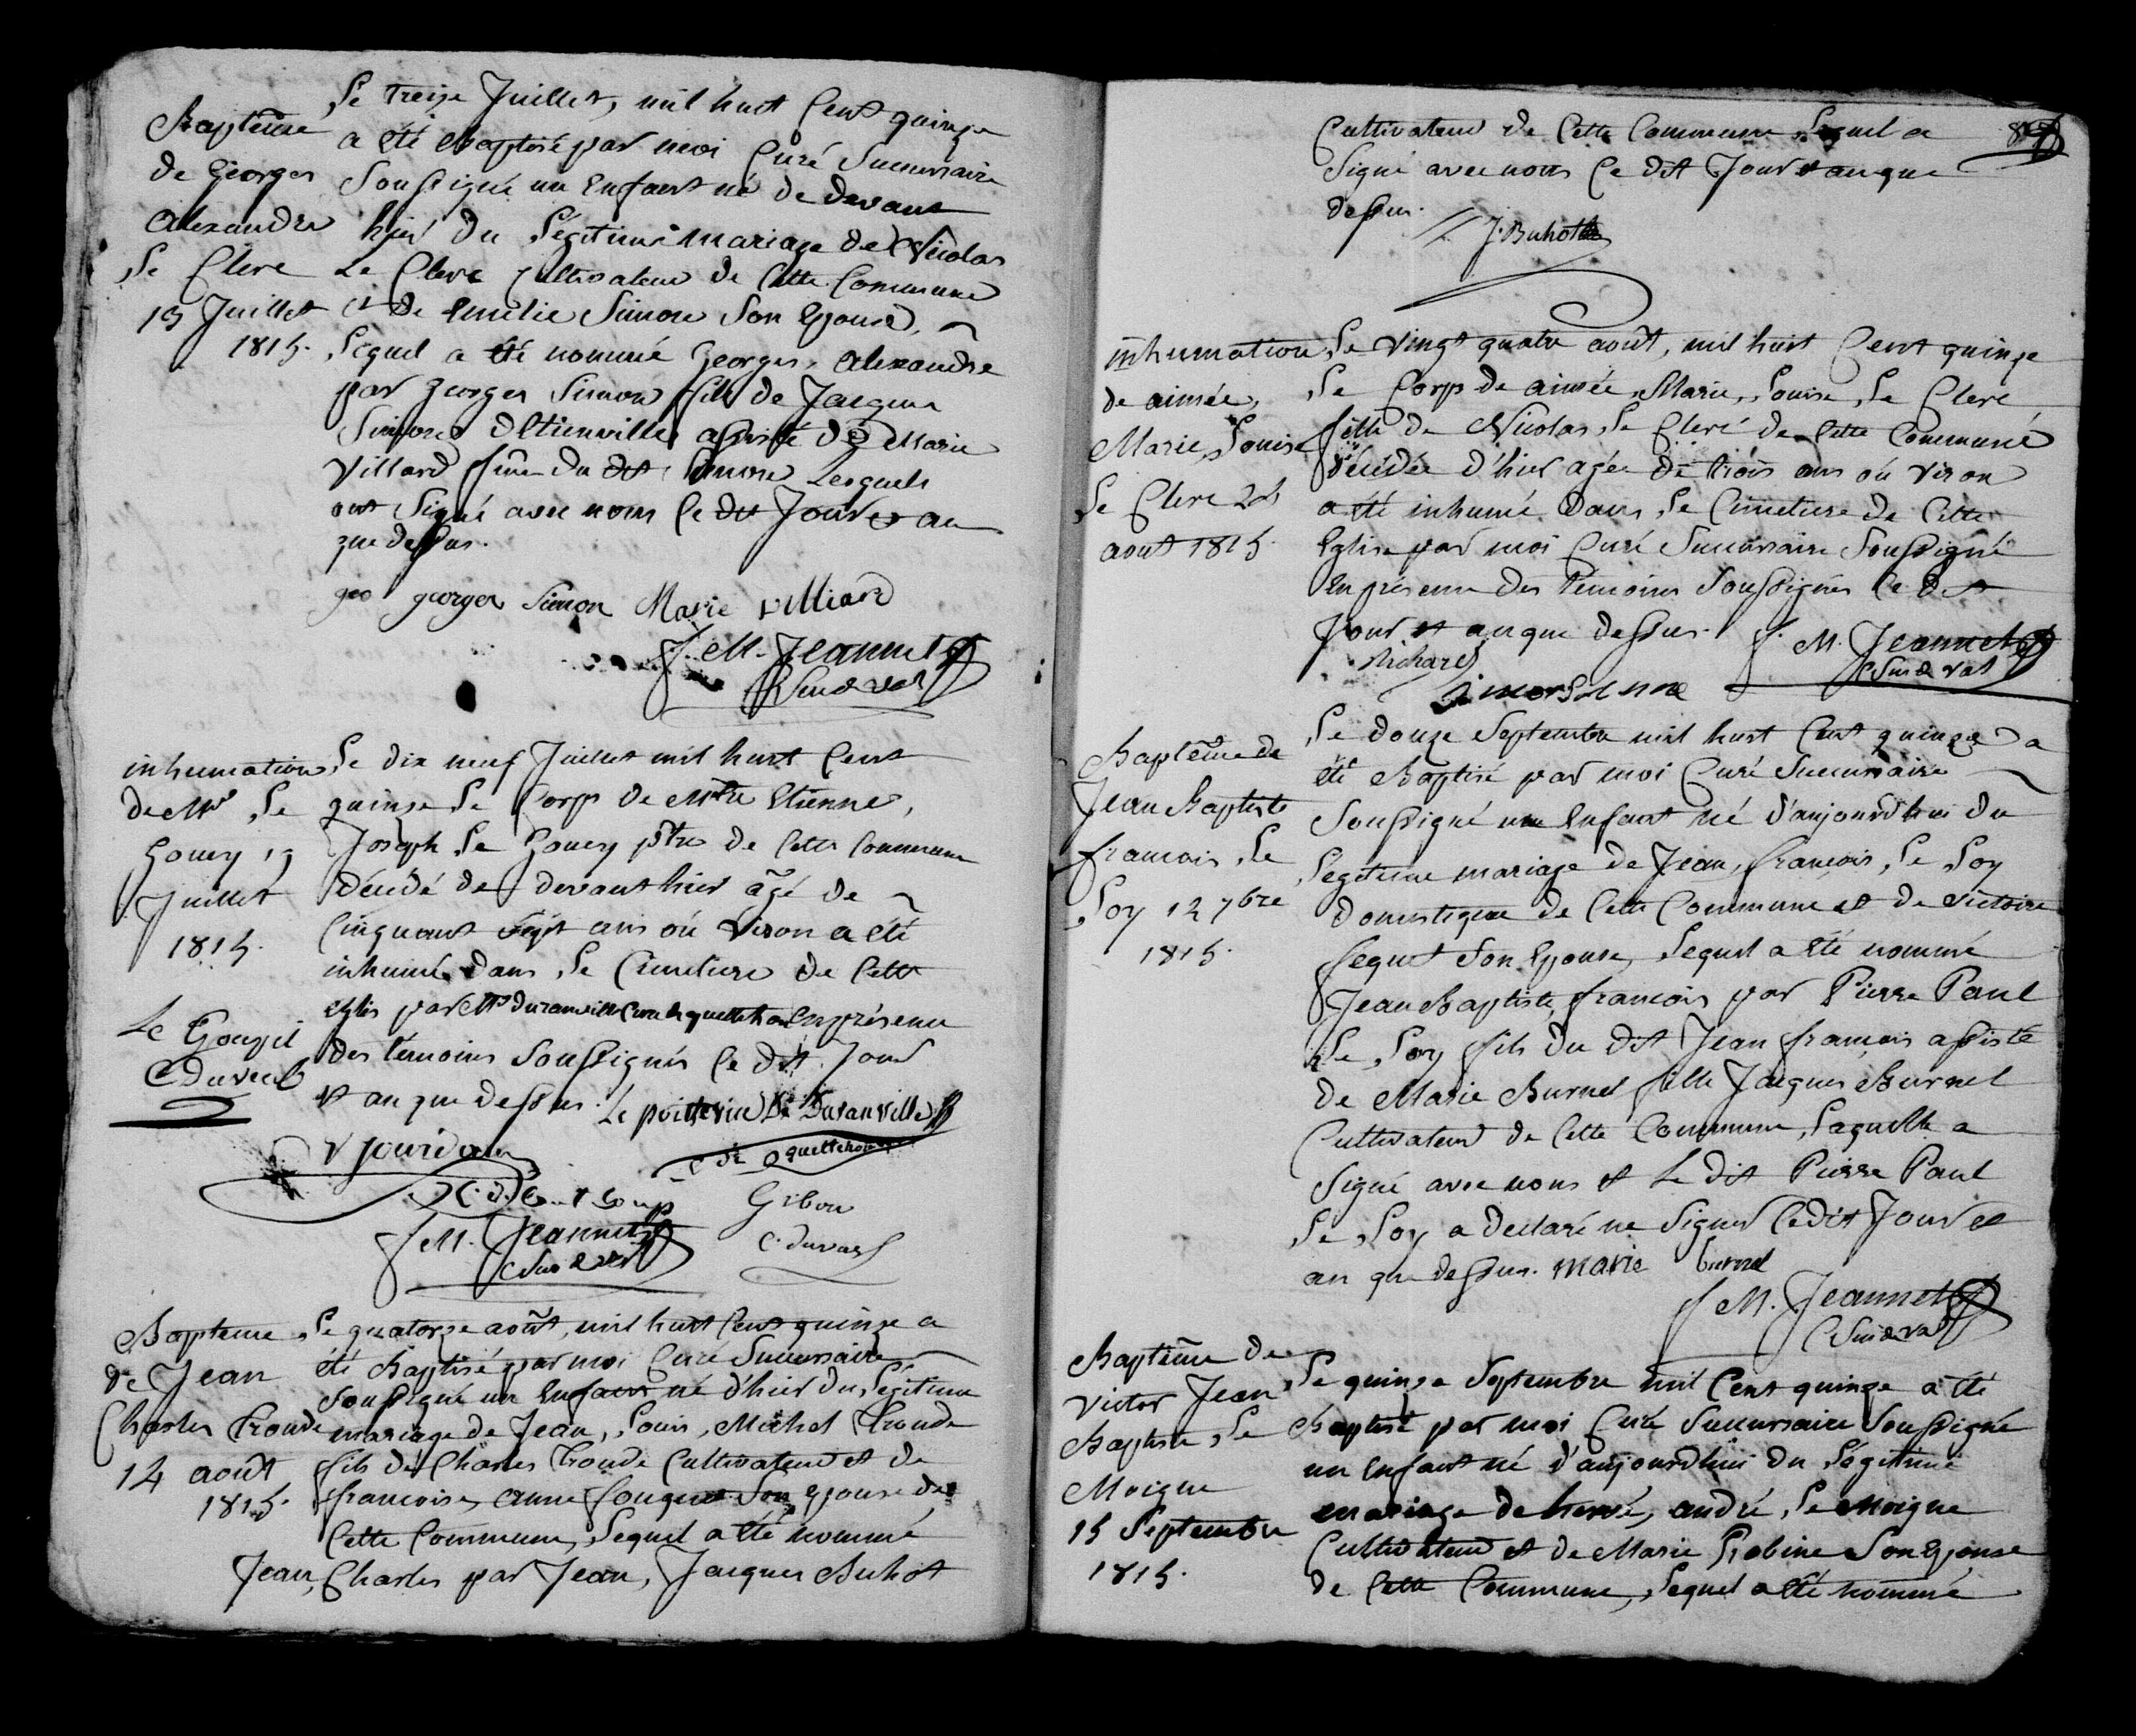 Baptême
de Georges
Alexandre
Le Clerc
13 Juillet
1815.
Le treize Juillet, mil huit Cent quinze
a été Baptisé par moi Curé Succursaire
Soussigné un Enfant né de devant
hier du Légitime mariage de Nicolas
Le Clerc Cultivateur de Cette Commune
et de Emélie Simon Son Epouse,
Lequel a été nommé Georges, Alexandre
par Georges Simon fils de Jacques
Simon d'Etienville assisté de Marie
Villard fême du dit Simon Lesquels
ont Signé avec nous Ce dit Jour et an
que dessus.
geo georges Simon Marie villiard
J. M. Jeannet
inhumation
de Mr Le
Gouey 19
Juillet
1815.
Le Goupil
C Duval
Le dix neuf Juillet mil huit Cent
quinze Le Corp de Mtre Etienne,
Joseph Le Gouey ptre de Cette Commune
décédé de devant hier âgé de
Cinquant Sept ans où viron a été
inhumé dans Le Cimetiere de Cette
eglis par Mr duranville Curé de quettehou En présence
des témoins Soussignés Ce dit Jour
et an que dessus. Le poittevin De Duranville
c de quettehou
V jourdan
Gibon
J M. Jeannet
C. duval
Bapteme
de Jean
Charles Troude
14 août
1815.
Le quatorze août, mil huit Cent quinze a
été Baptisé par moi Curé Succursaire
Soussigné un Enfant né d'hier du Légitime
mariage de Jean, Louis, Michel Troude
fils de Charles Troude Cultivateur et de
francoise, anne fouquet Son Epouse de
Cette Commune, Lequel a été nommé
Jean, Charles par Jean, Jacques Buhot
Cultivateur de Cette Commune Lequel a
Signé avec nous Ce dit Jour et an que
dessus.
J. Buhot
inhumation
de aimée,
Marie, Louise
Le Clerc 24
aout 1815.
Le vingt quatre août, mil huit Cent quinze
Le Corp de aimée, Marie, Louise, Le Clerc
fille de Nicolas Le Clerc de Cette Commune
décédée d'hier agée de trois ans où viron
a été inhumé dans Le Cimetiere de Cette
Eglise par moi Curé Succursaire Soussigné
En présence des témoins Soussignés Ce dit
Jour et an que dessus. J. M. Jeannet
Richard
Baptême de
Jean Baptiste
francois Le
Loy 12 7bre
1815.
Le douze Septembre mil huit Cent quinze a
été Baptisé par moi Curé Succursaire
Soussigné un Enfant né d'aujourd'hui du
Légitime mariage de Jean, francois, Le Loy
domestique de Cette Commune et de victoire
fequet Son Epouse, Lequel a été nommé
Jean Baptiste, francois par Pierre Paul
Le Loy fils du dit Jean francois assisté
de Marie Burnel fille Jacques Burnel
Cultivateur de Cette Commune, Laquelle a
Signé avec nous et Le dit Pierre Paul
Le Loy a declaré ne Signer Ce dit Jour et
an que dessus. marie burnel
J M. Jeannet
Baptême de
victor Jean
Baptiste Le
Moigne
15 Septembre
1815.
Le quinze Septembre mil Cent quinze a été
Baptisé par moi Curé Succursaire Soussigné
un Enfant né d'aujourdhui du Légitime
mariage de hervé, andré, Le Moigne
Cultivateur et de Marie Robine Son Epouse
de Cette Commune, Lequel a été nommé